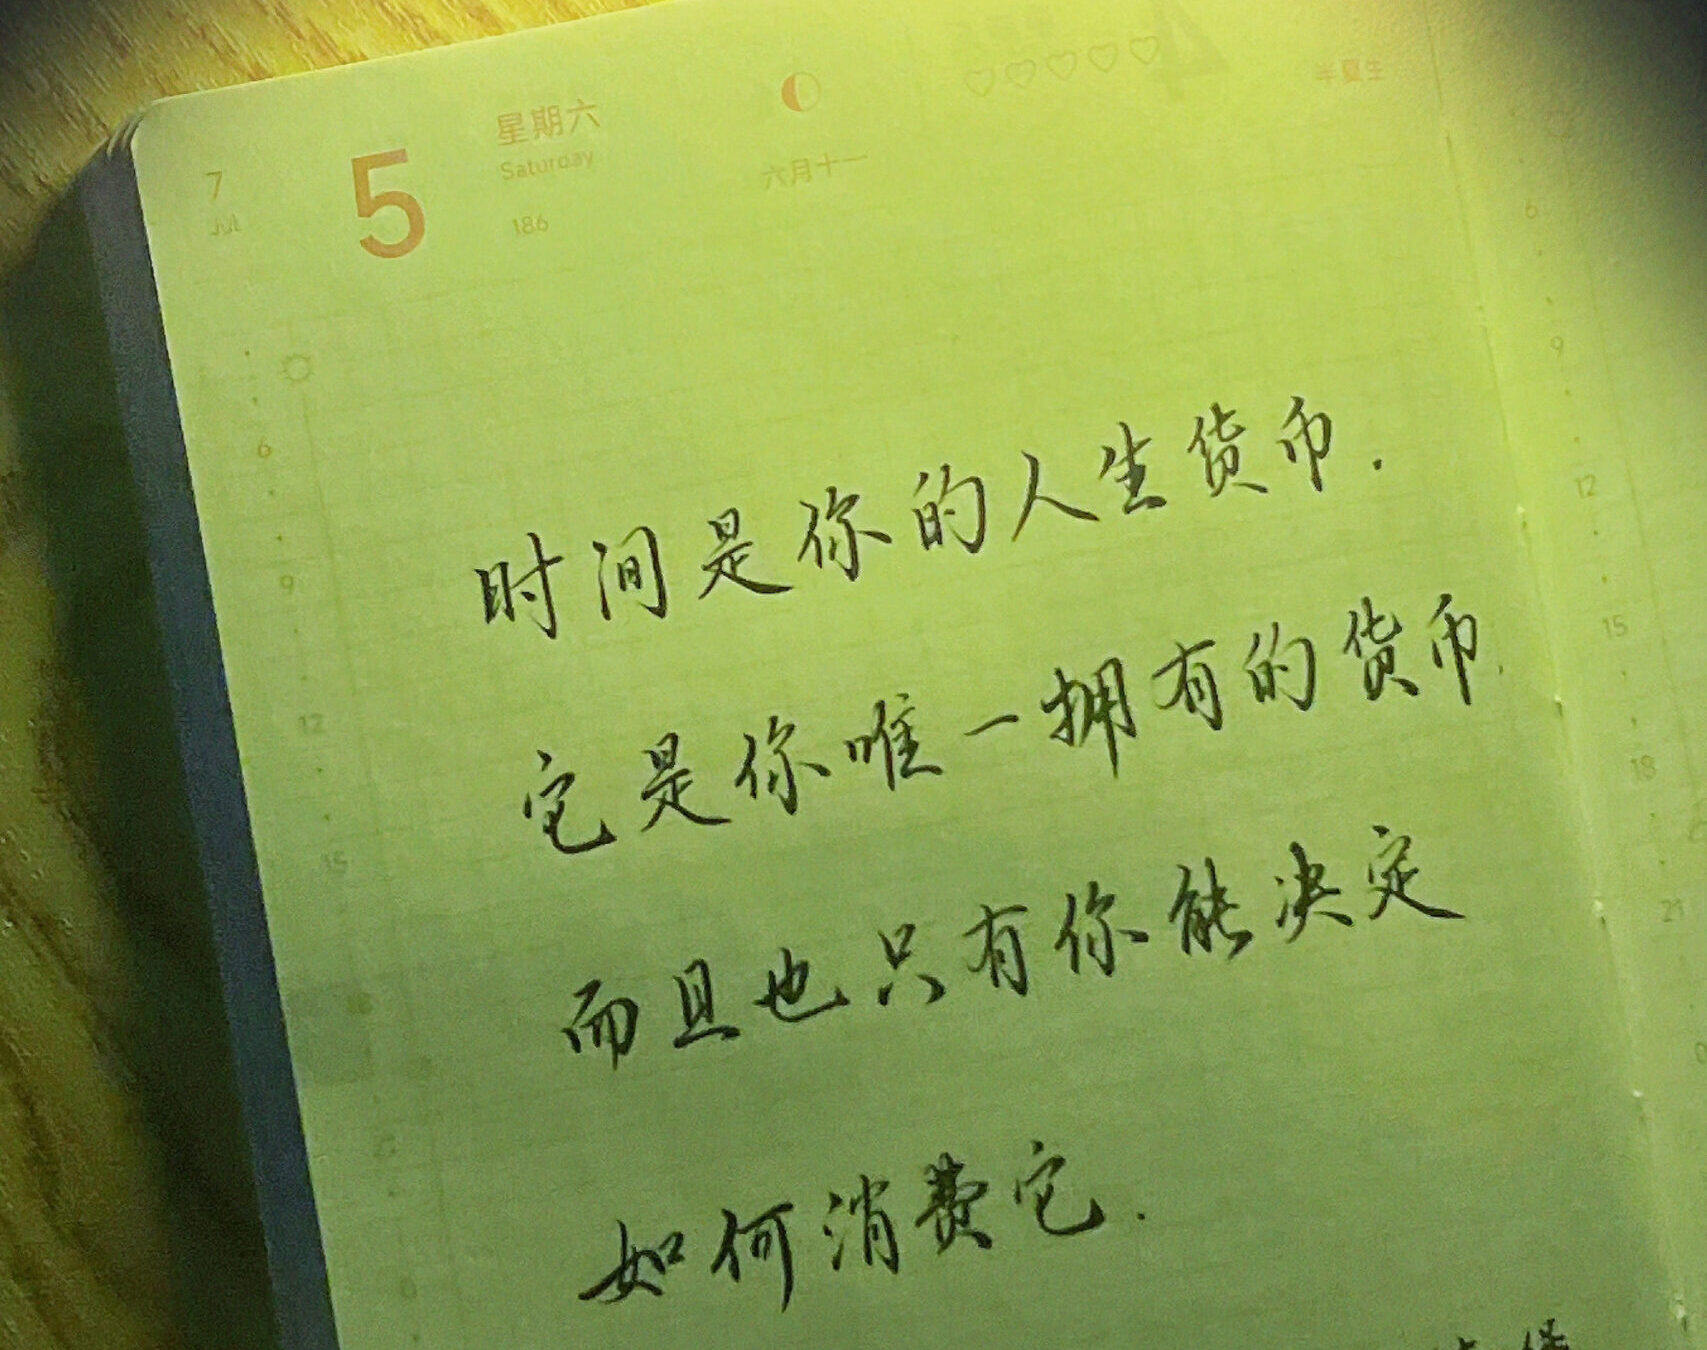 7
Jul
5
星期六
Saturday
186
六月十一
半夏生
4
时间是你的人生货币.
它是你唯一拥有的货币.
而且也只有你能决定
如何消费它.
6
9
12
15
6
9
12
15
18
21